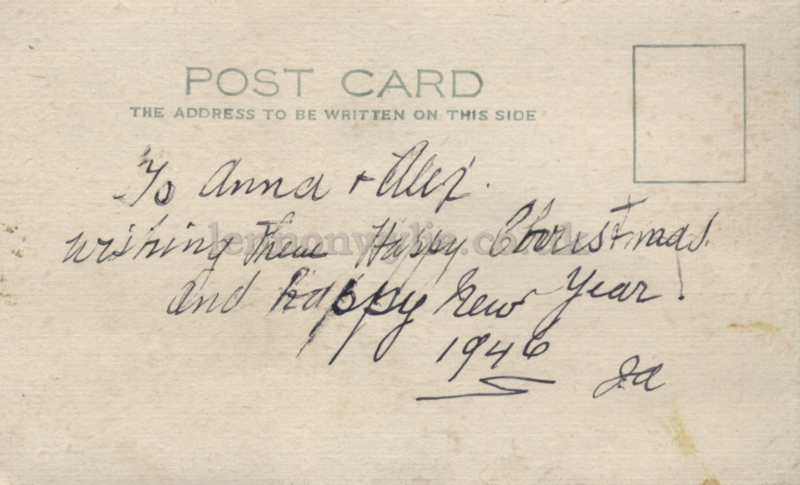 POST CARD
THE ADDRESS TO BE WRITTEN ON THIS SIDE
To Anna + Alex.
wishing Them Happy Christmas.
And Happy New Year.
1946